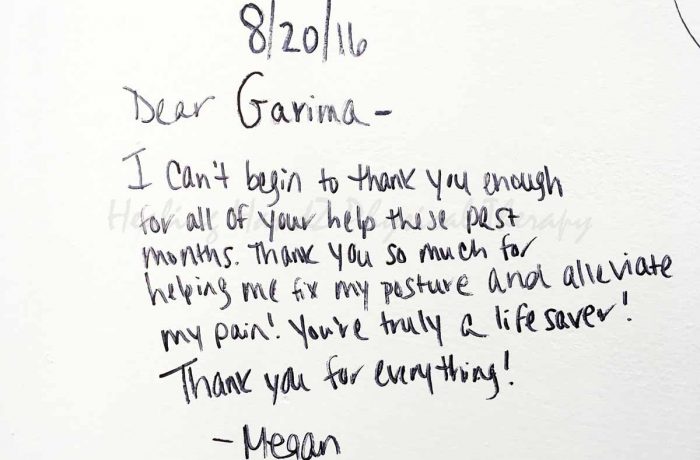 8/20/16
Dear Garima -
I can't begin to thank you enough
for all of your help these past
Healing Handz Physical Therapy
months. Thank you so much for
helping me fix my posture and alleviate
my pain! You're truly a lifesaver!
Thank you for everything!
- Megan